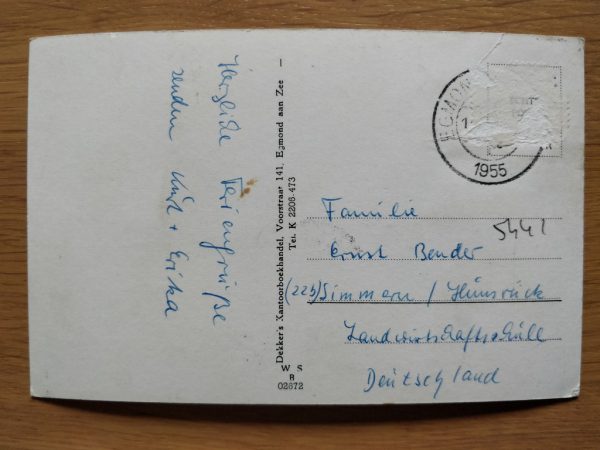 Herzliche Feriengrüße
senden Kurt + Erika
Dekker's Kantoorboekhandel, Voorstraat 141, Egmond aan Zee —
Tel. K 2206-473
W S
B
02672
EGMON
1955
Familie
Ernst Bender
5441
(22b) Simmern / Hunsrück
Landwirtschaftsschule
Deutschland